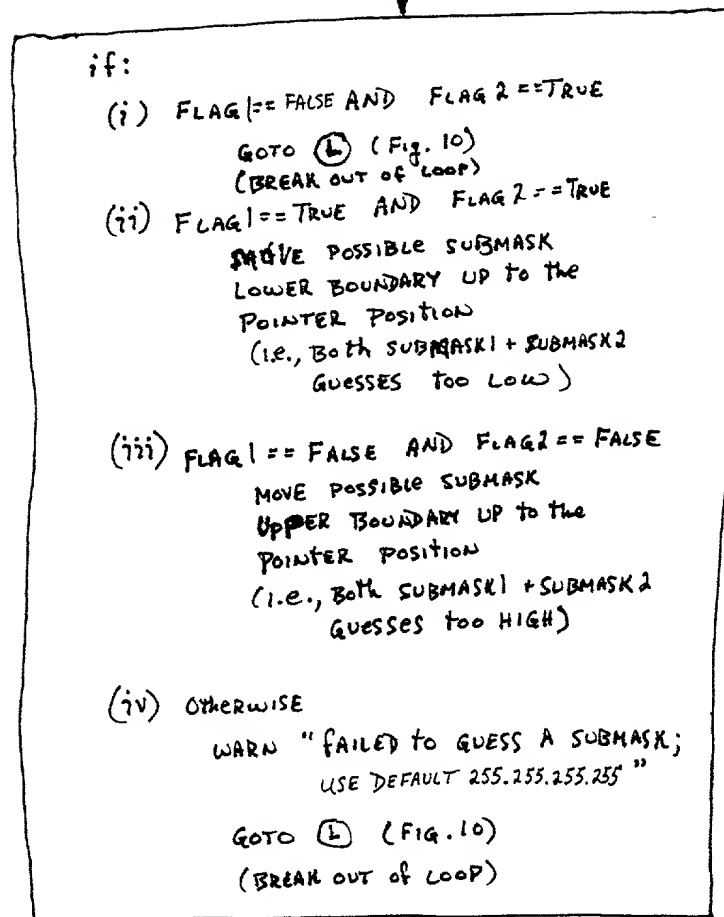 if:
(i) FLAG1== FALSE AND FLAG2 ==TRUE
GOTO (L) (Fig. 10)
(BREAK OUT OF LOOP)
(ii) FLAG1== TRUE AND FLAG2 ==TRUE
MOVE POSSIBLE SUBMASK
LOWER BOUNDARY UP to the
POINTER POSITION
(i.e., Both SUBMASK1 + SUBMASK2
GUESSES too LOW)
(iii) FLAG1 == FALSE AND FLAG2 == FALSE
MOVE POSSIBLE SUBMASK
UPPER BOUNDARY UP to the
POINTER POSITION
(i.e., Both SUBMASK1 + SUBMASK2
GUESSES too HIGH)
(iv) OTHERWISE
WARN "FAILED to GUESS A SUBMASK;
USE DEFAULT 255.255.255.255"
GOTO (L) (FIG. 10)
(BREAK OUT of LOOP)